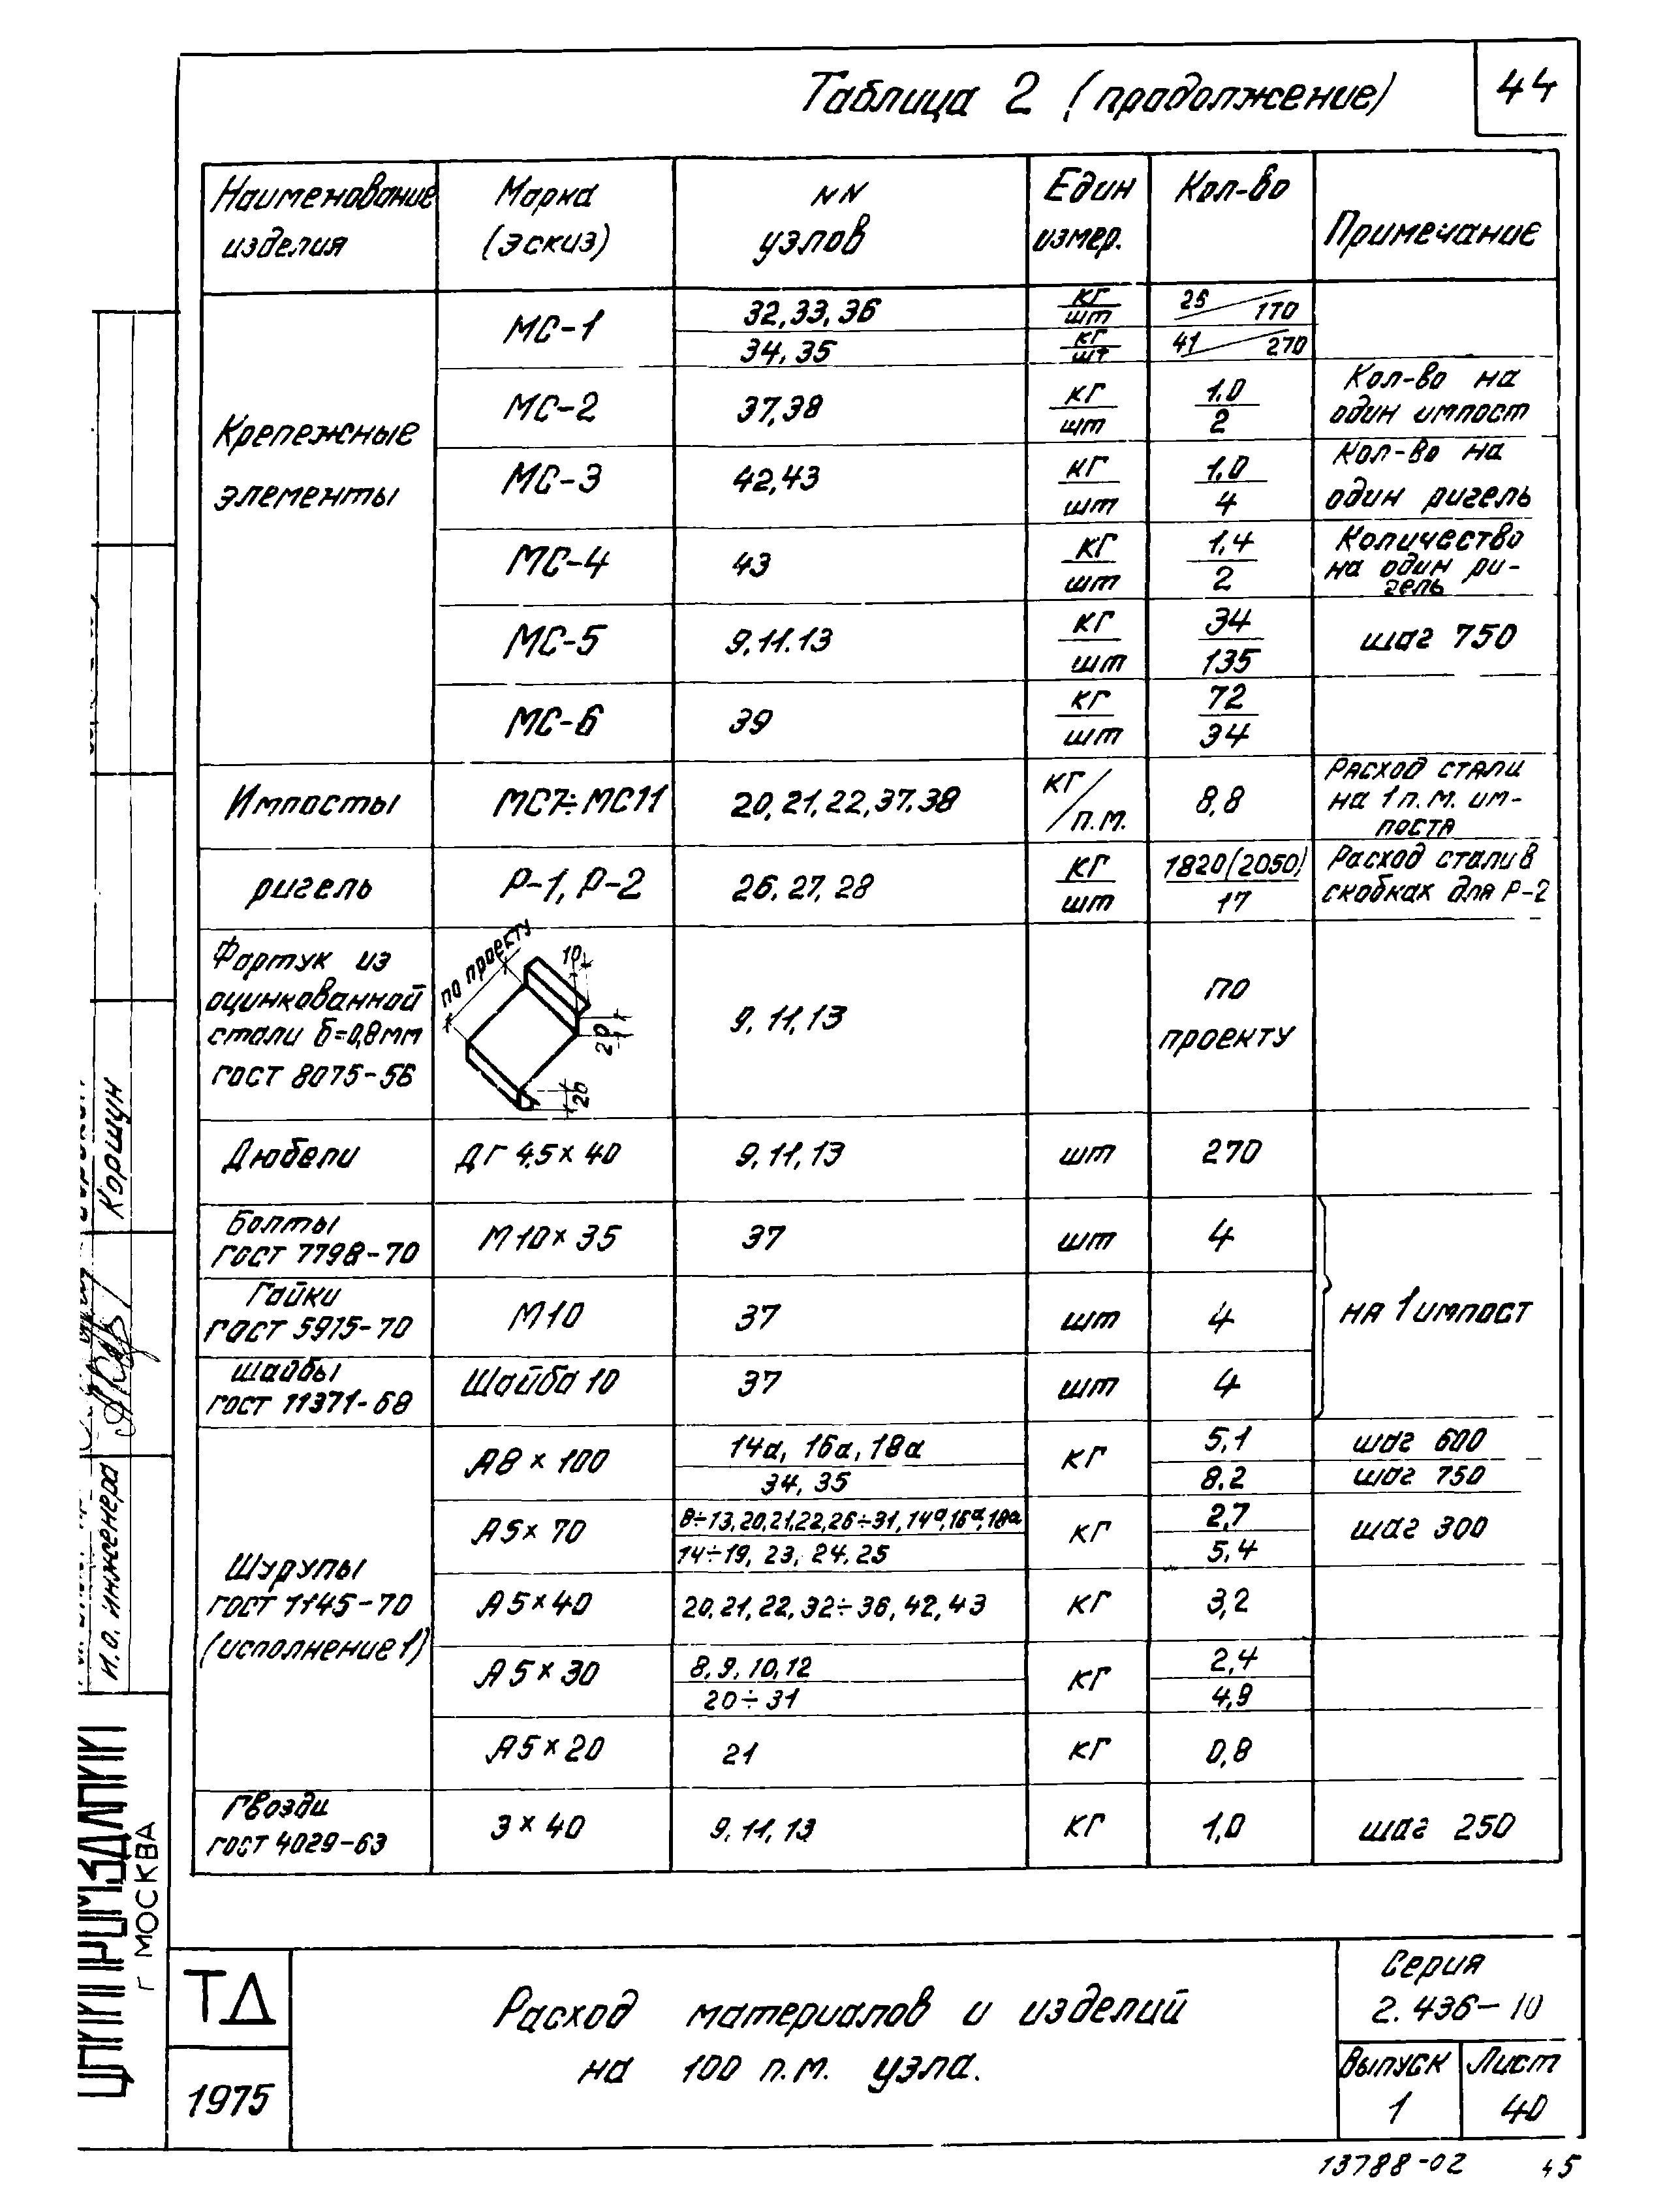 Таблица 2 (продолжение)
44
Наименование изделия | Марка (эскиз) | NN узлов | Един измер. | Кол-во | Примечание
Крепежные элементы
МС-1 | 32, 33, 36 | кг/шт | 26/170
34, 35 | кг/шт | 41/270
МС-2 | 37, 38 | кг/шт | 1,0/2 | Кол-во на один импост
МС-3 | 42, 43 | кг/шт | 1,0/4 | Кол-во на один ригель
МС-4 | 43 | кг/шт | 1,4/2 | Количество на один ри-гель
МС-5 | 9, 11. 13 | кг/шт | 34/135 | шаг 750
МС-6 | 39 | кг/шт | 72/34
Импосты | МС7÷МС11 | 20, 21, 22, 37, 38 | кг/п.м. | 8,8 | Расход стали на 1 п.м. им-поста
ригель | Р-1, Р-2 | 26, 27, 28 | кг/шт | 1820(2050)/17 | Расход стали в скобках для Р-2
Фартук из оцинкованной стали б=0,8мм ГОСТ 8075-56 | по проекту 10 20 26 | 9, 11, 13 | по проекту
Дюбели | ДГ 4,5×40 | 9, 11, 13 | шт | 270
Болты ГОСТ 7798-70 | М10×35 | 37 | шт | 4
Гайки ГОСТ 5915-70 | М10 | 37 | шт | 4 | на 1 импост
Шайбы ГОСТ 11371-68 | Шайба 10 | 37 | шт | 4
Шурупы ГОСТ 1145-70 (исполнение 1)
А8×100 | 14а, 16а, 18а | кг | 5,1 | шаг 600
34, 35 | 8,2 | шаг 750
А5×70 | 8÷13, 20, 21, 22, 26÷31, 14а, 16а, 18а | кг | 2,7 | шаг 300
14÷19, 23, 24, 25 | 5,4
А5×40 | 20, 21, 22, 32÷36, 42, 43 | кг | 3,2
А5×30 | 8, 9, 10, 12 | кг | 2,4
20÷31 | 4,9
А5×20 | 21 | кг | 0,8
Гвозди ГОСТ 4029-63 | 3×40 | 9, 11, 13 | кг | 1,0 | шаг 250
Коршун
И.о. инженера
ЦНИИПРОМЗДАНИЙ
г МОСКВА
ТД
1975
Расход материалов и изделий
на 100 п.м. узла.
Серия
2.436-10
Выпуск
1
Лист
40
13788-02
45